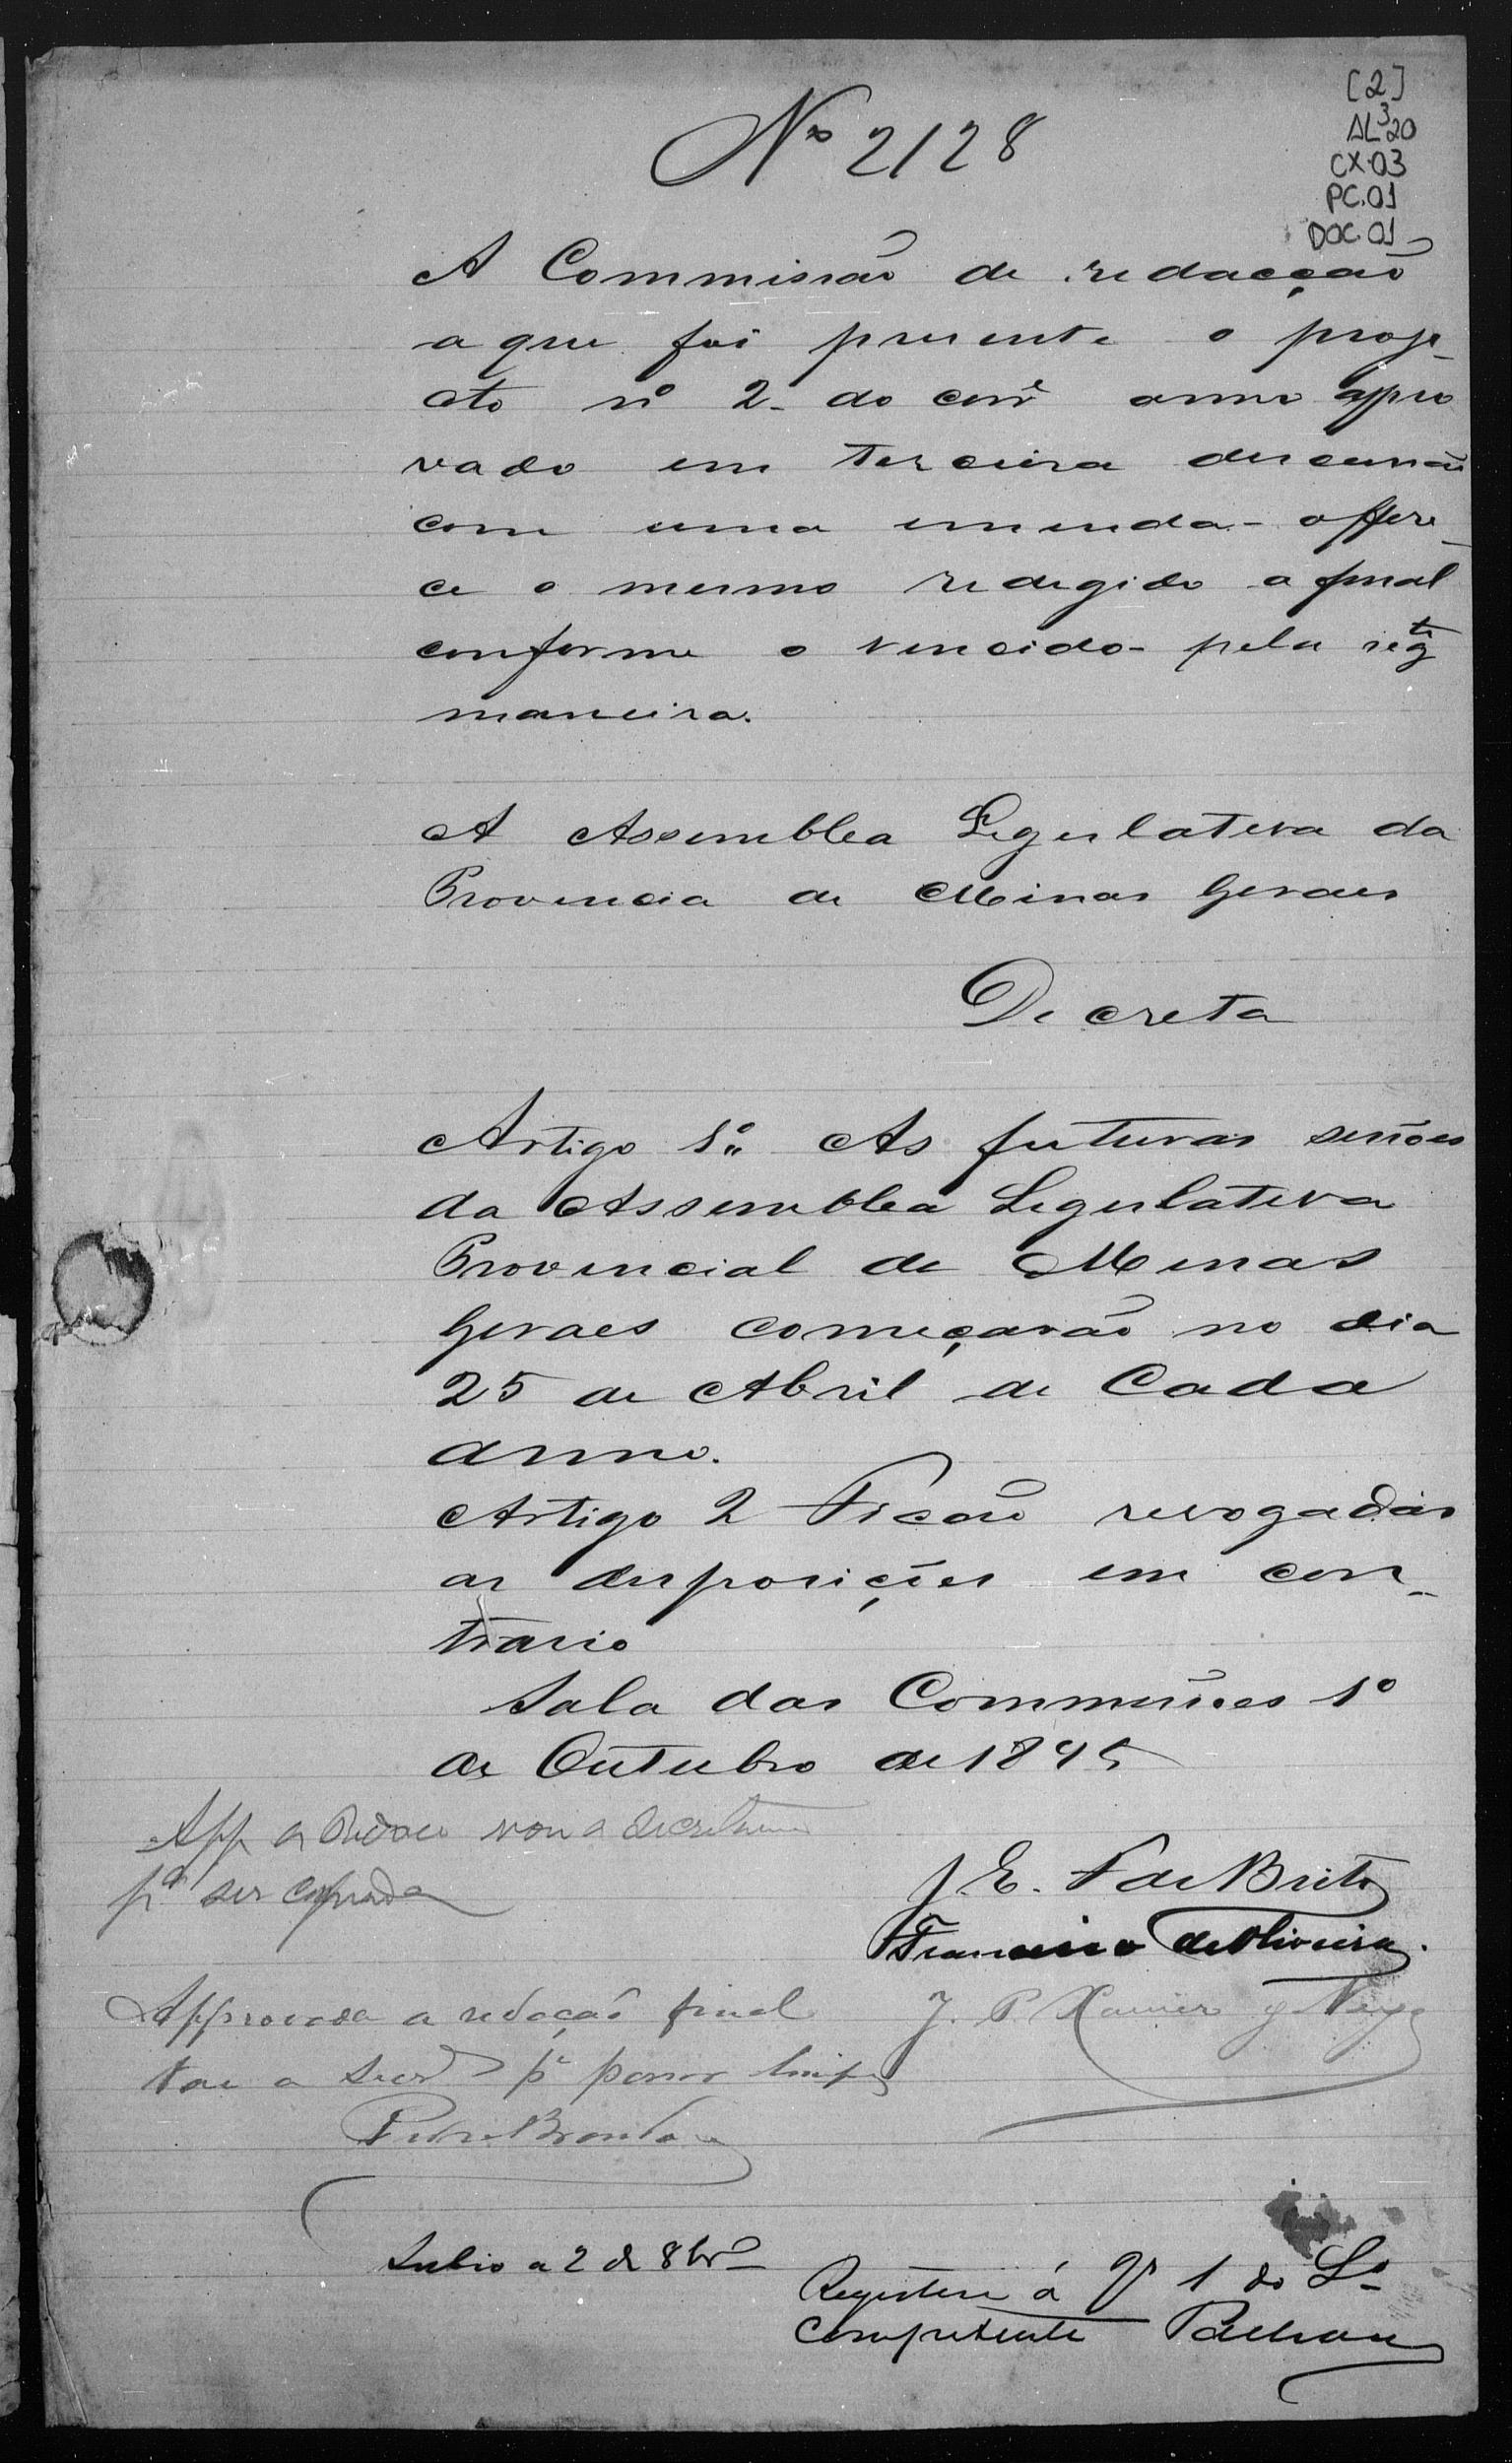 [2]
AL³20
CX.03
PC.01
DOC.01
Nº 2128
A Commissão de redacção
a que foi presente o proje_
cto nº 2 - do corrº anno appro
vado em terceira discussão
com uma emenda - offere_
ce o mesmo redegido a final
conforme o vencido - pela segte
maneira.
A Assemblea Legislativa da
Provincia de Minas Geraes
Decreta
Artigo 1º As futuras sessões
da Assemblea Legislativa
Provincial de Minas
Geraes começarão no dia
25 de Abril de Cada
anno.
Artigo 2 Ficão revogadas
as disposições em con_
trario
Sala das Commissões 1º
de Outubro de 1845
App a Redac
pª ser copiada
J. E. F de Brito
Francisco de Oliveira.
Approvada a redacção final
Vae a Secr pª
J. P. Xavier
Subio a 2 de 8brº
Registre á 1 do Lº
competente